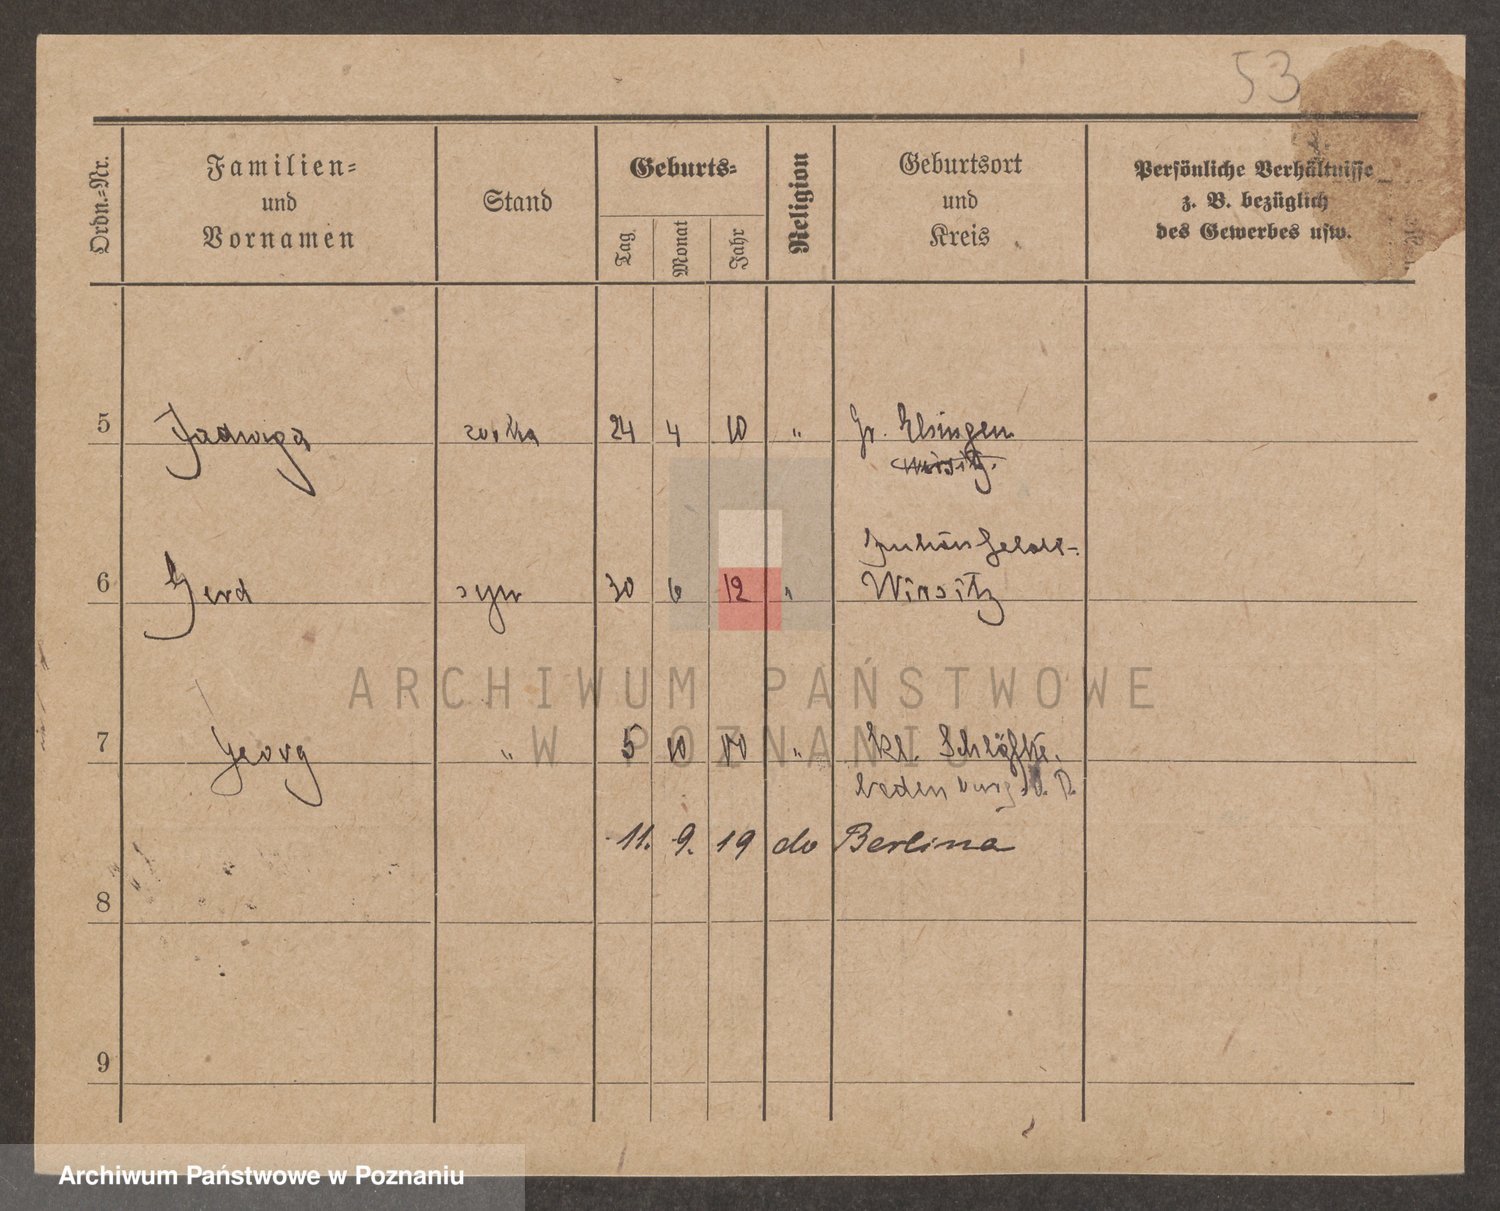 53
Ordn.-Nr.
Familien-
und
Vornamen
Stand
Geburts-
Tag
Monat
Jahr
Religion
Geburtsort
und
Kreis
Persönliche Verhältnisse
z. B. bezüglich
des Gewerbes usw.
5 Jadwiga 24 4 10 " Gr. Elsingen
Wirsitz.
6 Gerd syn 30 6 12 "
Wirsitz
7 Georg " 5 10 " Kl.
11. 9. 19 do Berlina
8
9
ARCHIWUM PAŃSTWOWE
W POZNANIU
Archiwum Państwowe w Poznaniu